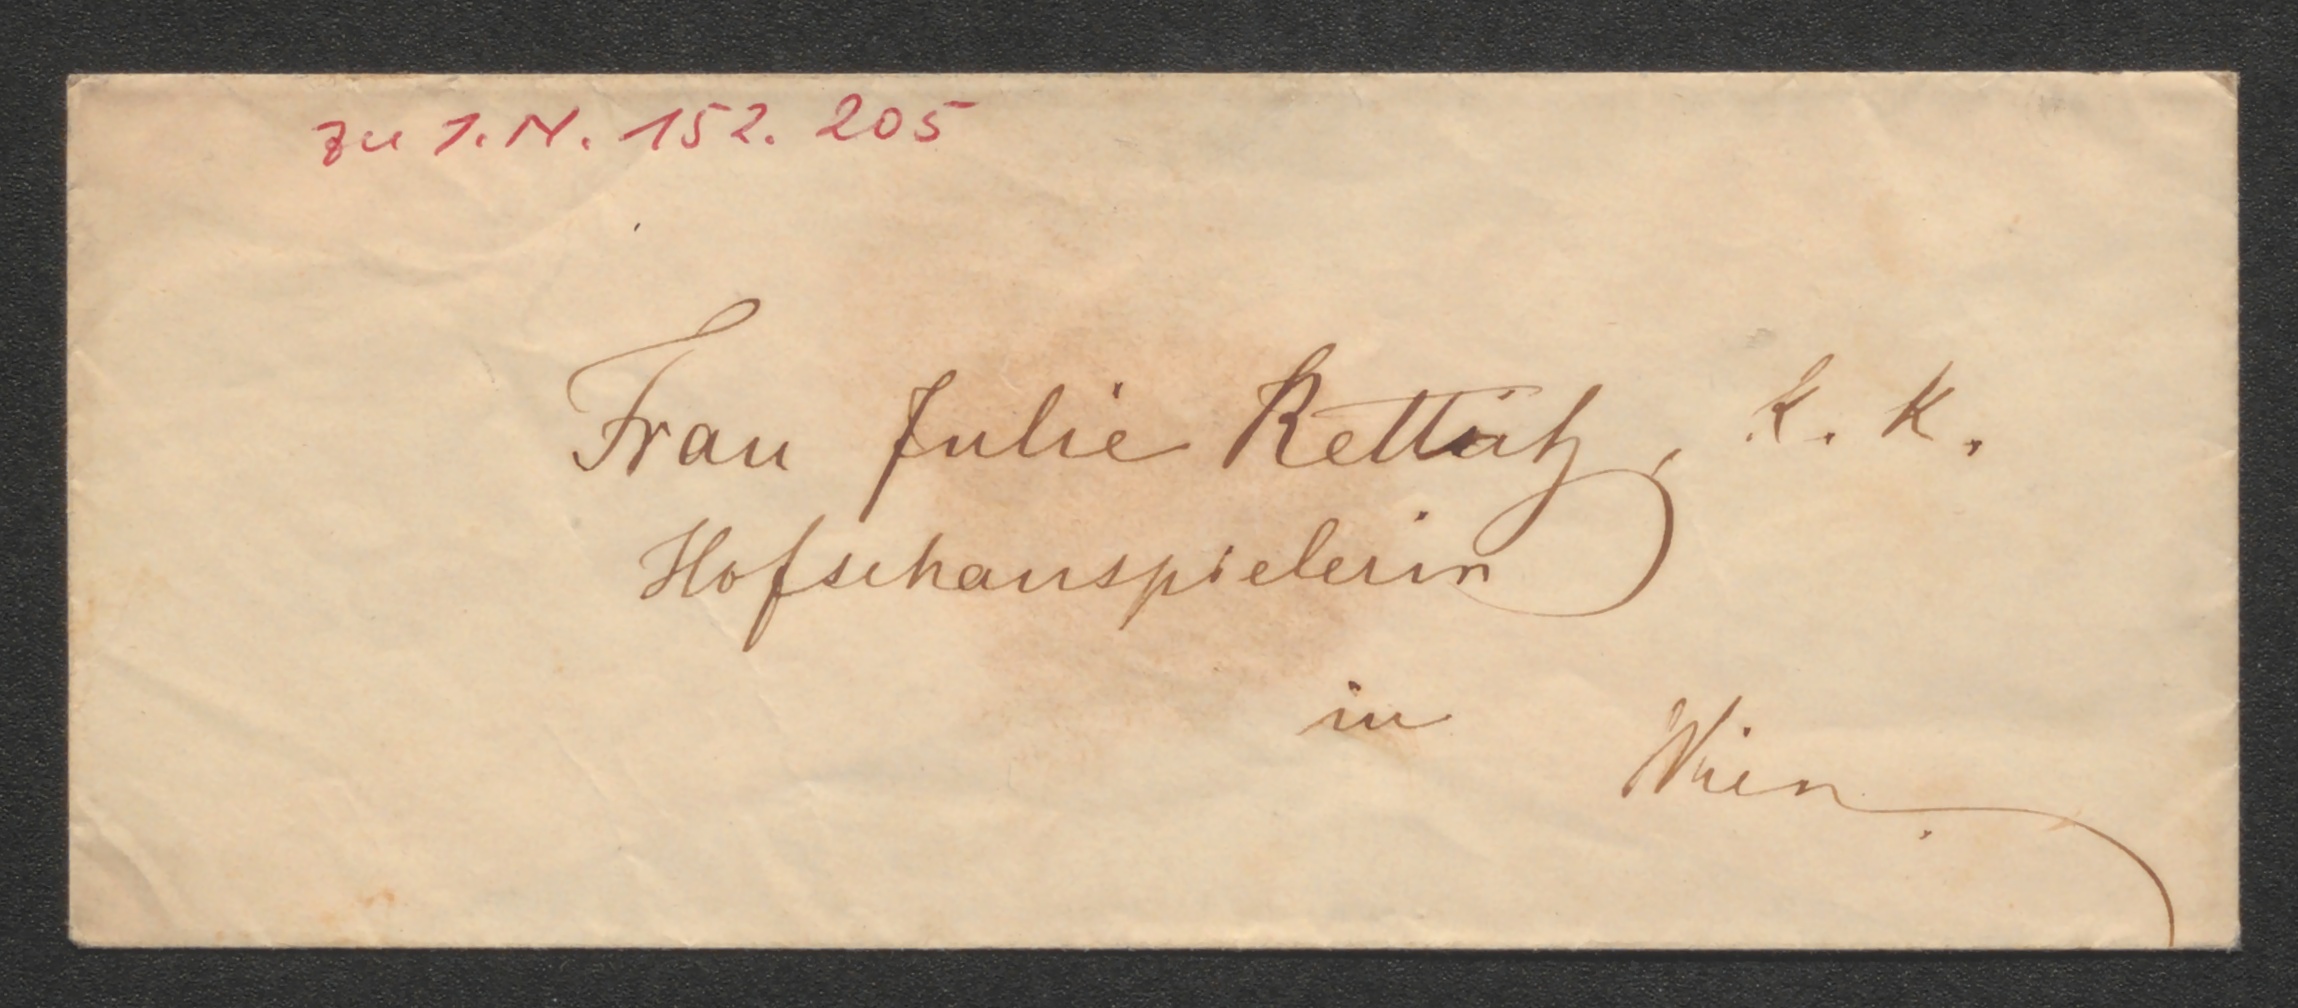 zu I.N. 152.205
Frau Julie Rettich, k. k.
Hofschauspielerin
in
Wien.